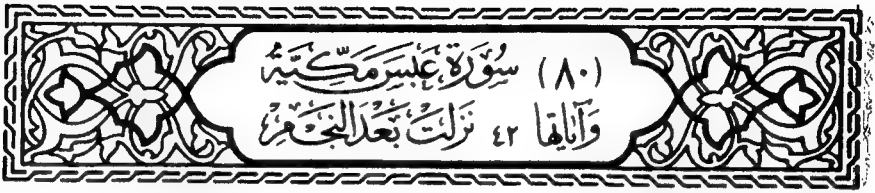 (٨٠) سُورَة عَبَسَ مَكِّيَّة
وَآيَاتُهَا ٤٢ نَزَلَتْ بَعْدَ النَّجْمِ